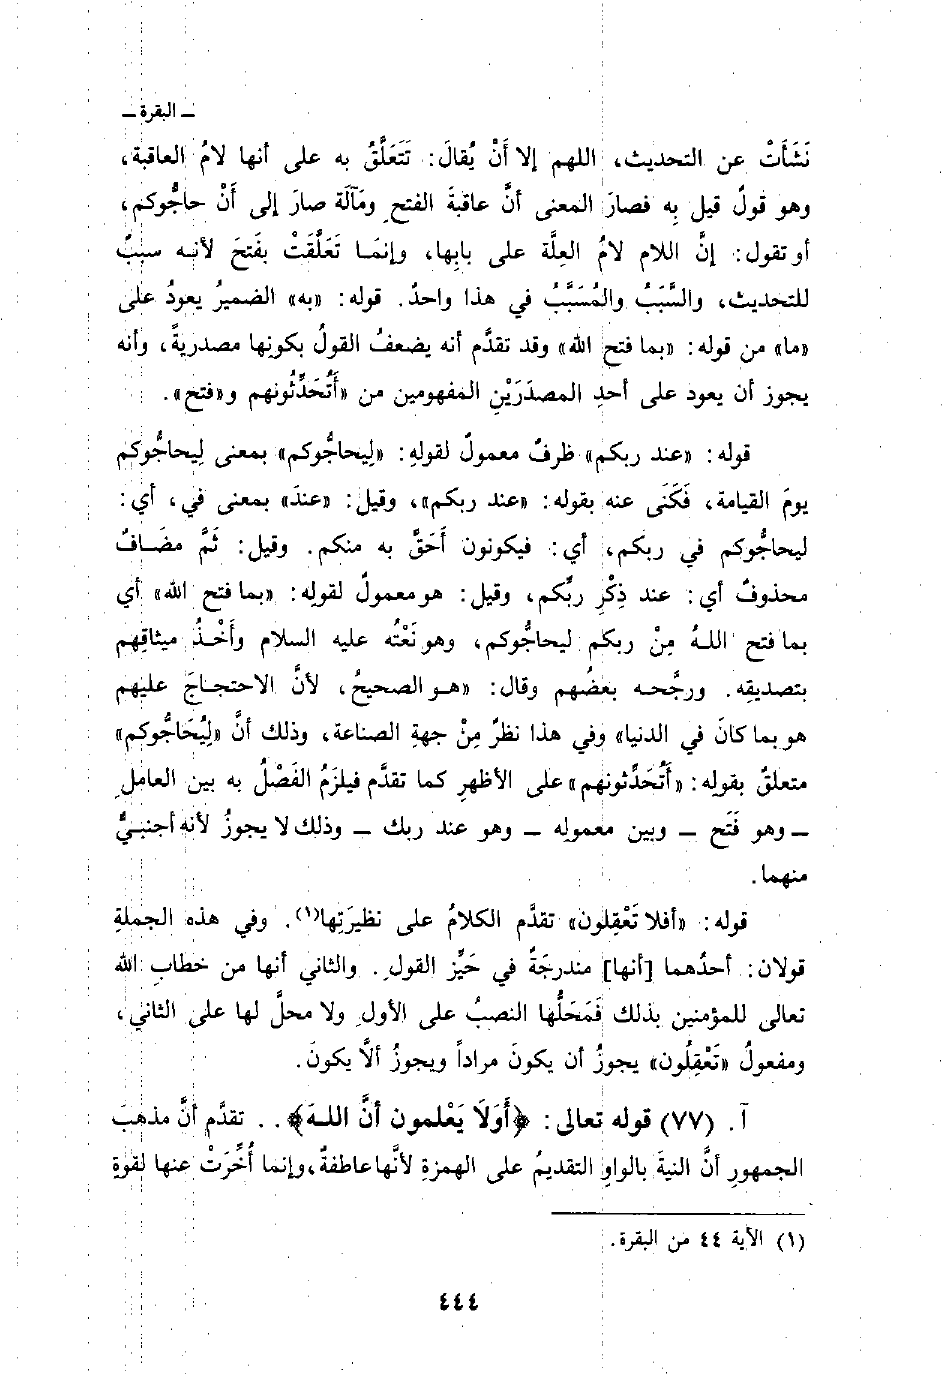 ـ البقرة ـ
نَشَأَتْ عن التحديث، اللهم إلا أَنْ يُقالَ: تَتَعَلَّقُ به على أنها لامُ العاقبة،
وهو قولٌ قيل بِه فصارَ المعنى أنَّ عاقبةَ الفتح ِ ومَآلَه صارَ إلى أَنْ حاجُّوكم،
أو تقول: إنَّ اللام لامُ العِلَّة على بابِها، وإنَمَا تَعَلَّقَتْ بفَتَحَ لأنـه سببٌ
للتحديث، والسَّبَبُ والمُسَبَّبُ في هذا واحدٌ. قوله: «به» الضميرُ يعودُ على
«ما» من قوله: «بما فتح الله» وقد تقدَّم أنه يضعفُ القولُ بكونها مصدريةً، وأنه
يجوز أن يعود على أحدِ المصدَرَيْنِ المفهومين من «أَتُحَدِّثُونهم و«فتح».
قوله: «عند ربكم» ظرفٌ معمولٌ لقولِهِ: «لِيحاجُّوكم» بمعنى لِيحاجُّوكم
يومَ القيامة، فَكَنَى عنه بقوله: «عند ربكم»، وقيل: «عندَ» بمعنى في، أي:
ليحاجُّوكم في ربكم، أي: فيكونون أَحَقَّ به منكم. وقيل: ثَمَّ مضـافٌ
محذوفٌ أي: عند ذِكْرِ ربِّكم، وقيل: هو معمولٌ لقولِه: «بما فتح الله» أي
بما فتح اللـهُ مِنْ ربكم ليحاجُّوكم، وهو نَعْتُه عليه السلام وأَخْـذُ ميثاقِهم
بتصديقِه. ورجَّحـه بعضُهم وقال: «هـو الصحيحُ، لأنَّ الاحتجـاجَ عليهم
هو بما كانَ في الدنيا» وفي هذا نظرٌ مِنْ جهةِ الصناعة، وذلك أنَّ «لِيُحَاجُّوكم»
متعلقٌ بقولِه: «أَتُحَدِّثونهم» على الأظهرِ كما تقدَّم فيلزَمُ الفَصْلُ به بين العامل ِ
ـ وهو فَتَح ـ وبين معمولِه ـ وهو عند ربك ـ وذلك لا يجوزُ لأنه أجنبـيٌّ
منهما.
قوله: «أفلا تَعْقِلون» تقدَّم الكلامُ على نظيرَتِها(١). وفي هذه الجملةِ
قولان: أحدُهما [أنها] مندرجَةٌ في حَيِّز القول ِ. والثاني أنها من خطابِ الله
تعالى للمؤمنين بذلك فَمَحَلُّها النصبُ على الأول ِ ولا محلَّ لها على الثاني،
ومفعولُ «تَعْقِلُون» يجوزُ أن يكونَ مراداً ويجوزُ ألاَّ يكونَ.
آ. (٧٧) قوله تعالى: ﴿أَوَلَا يَعْلمون أنَّ اللـهَ﴾. . تقدَّم أنَّ مذهبَ
الجمهورِ أنَّ النيةَ بالواوِ التقديمُ على الهمزةِ لأنَّها عاطفةٌ، وإنما أُخِّرَتْ عنها لقوةِ
(١) الآية ٤٤ من البقرة.
٤٤٤